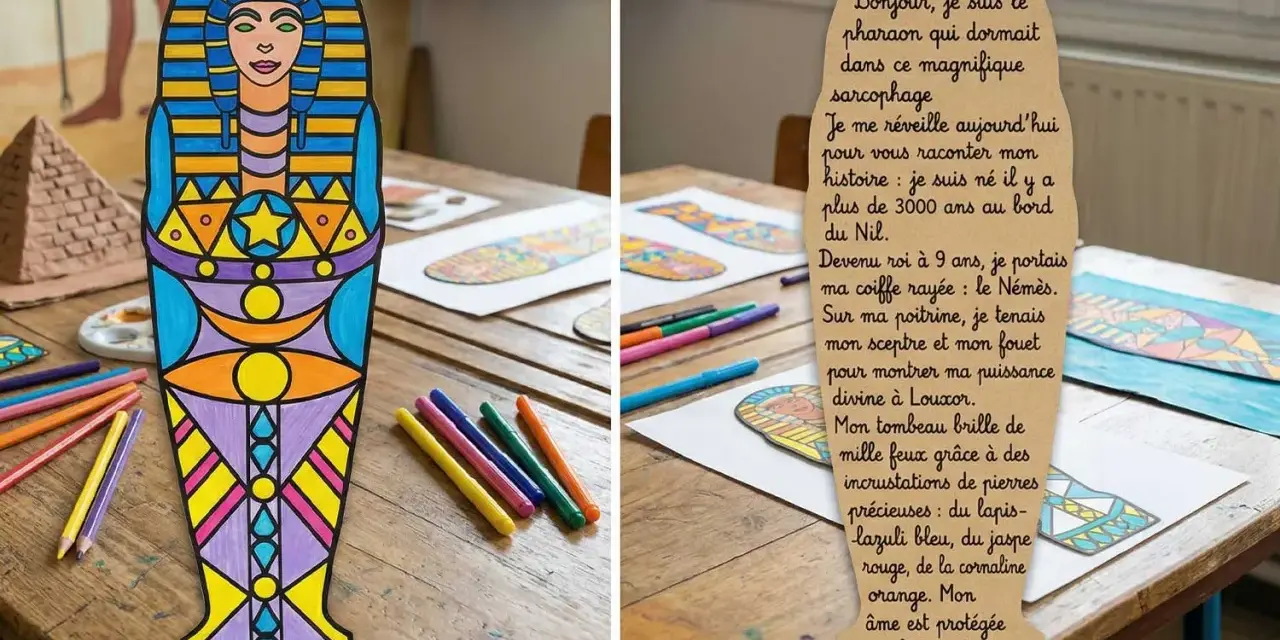 Bonjour, je suis le
pharaon qui dormait
dans ce magnifique
sarcophage
Je me réveille aujourd'hui
pour vous raconter mon
histoire : je suis né il y a
plus de 3000 ans au bord
du Nil.
Devenu roi à 9 ans, je portais
ma coiffe rayée : le Némès.
Sur ma poitrine, je tenais
mon sceptre et mon fouet
pour montrer ma puissance
divine à Louxor.
Mon tombeau brille de
mille feux grâce à des
incrustations de pierres
précieuses : du lapis-
-lazuli bleu, du jaspe
rouge, de la cornaline
orange. Mon
âme est protégée